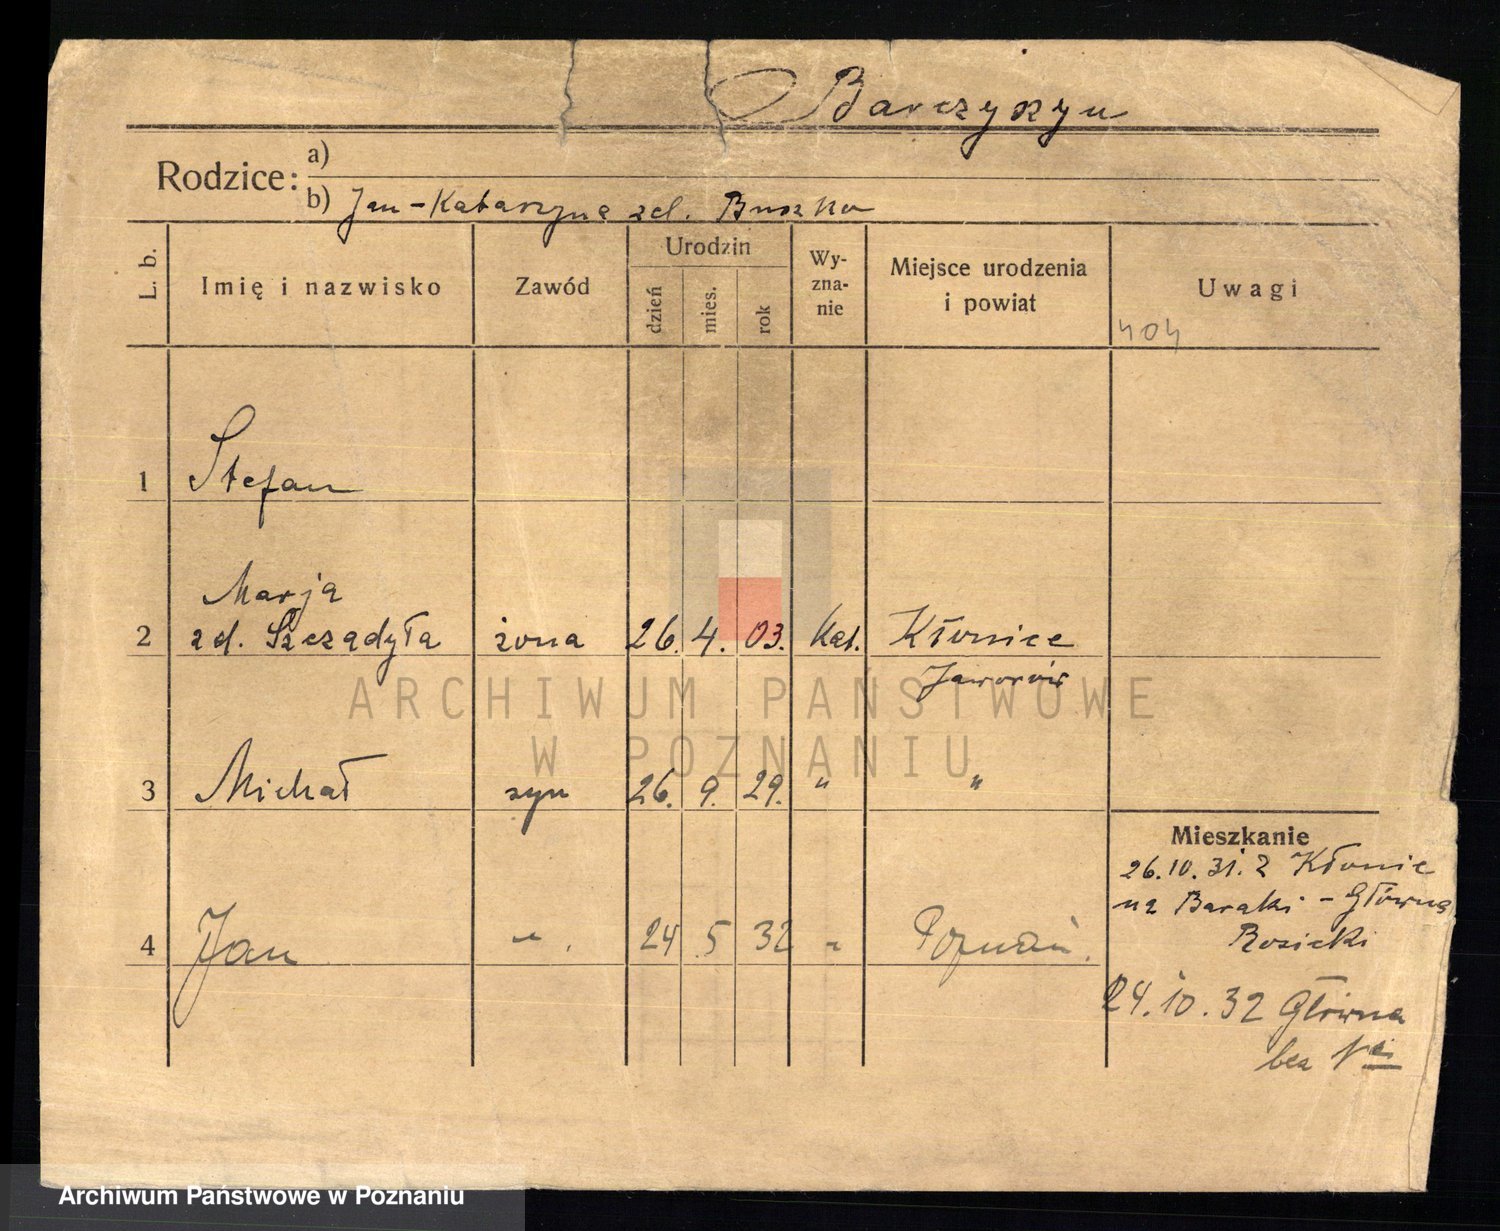 Barczyszyn
Rodzice:
a)
b) Jan - Katarzyna zd. Buszko
L. b.
Imię i nazwisko
Zawód
Urodzin
dzień
mies.
rok
Wy-
zna-
nie
Miejsce urodzenia
i powiat
Uwagi
404
1 Stefan
Marja
2 zd. Szcządyła żona 26. 4. 03. Kat. Kłonice
Jaworów
ARCHIWUM PAŃSTWOWE
W POZNANIU
3 Michał syn 26. 9. 29. " "
Mieszkanie
26.10.31. Z Kłonic
na Baraki - Główna
4 Jan " 24 5 32 " Poznań.
24.10.32 Główna
bez
Archiwum Państwowe w Poznaniu